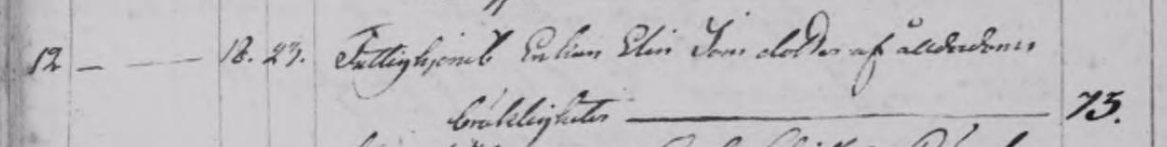 12 — — 18. 23. Fattighjonet Enkan Elin Jons dotter af ålderdoms
bräkligheter — 75.